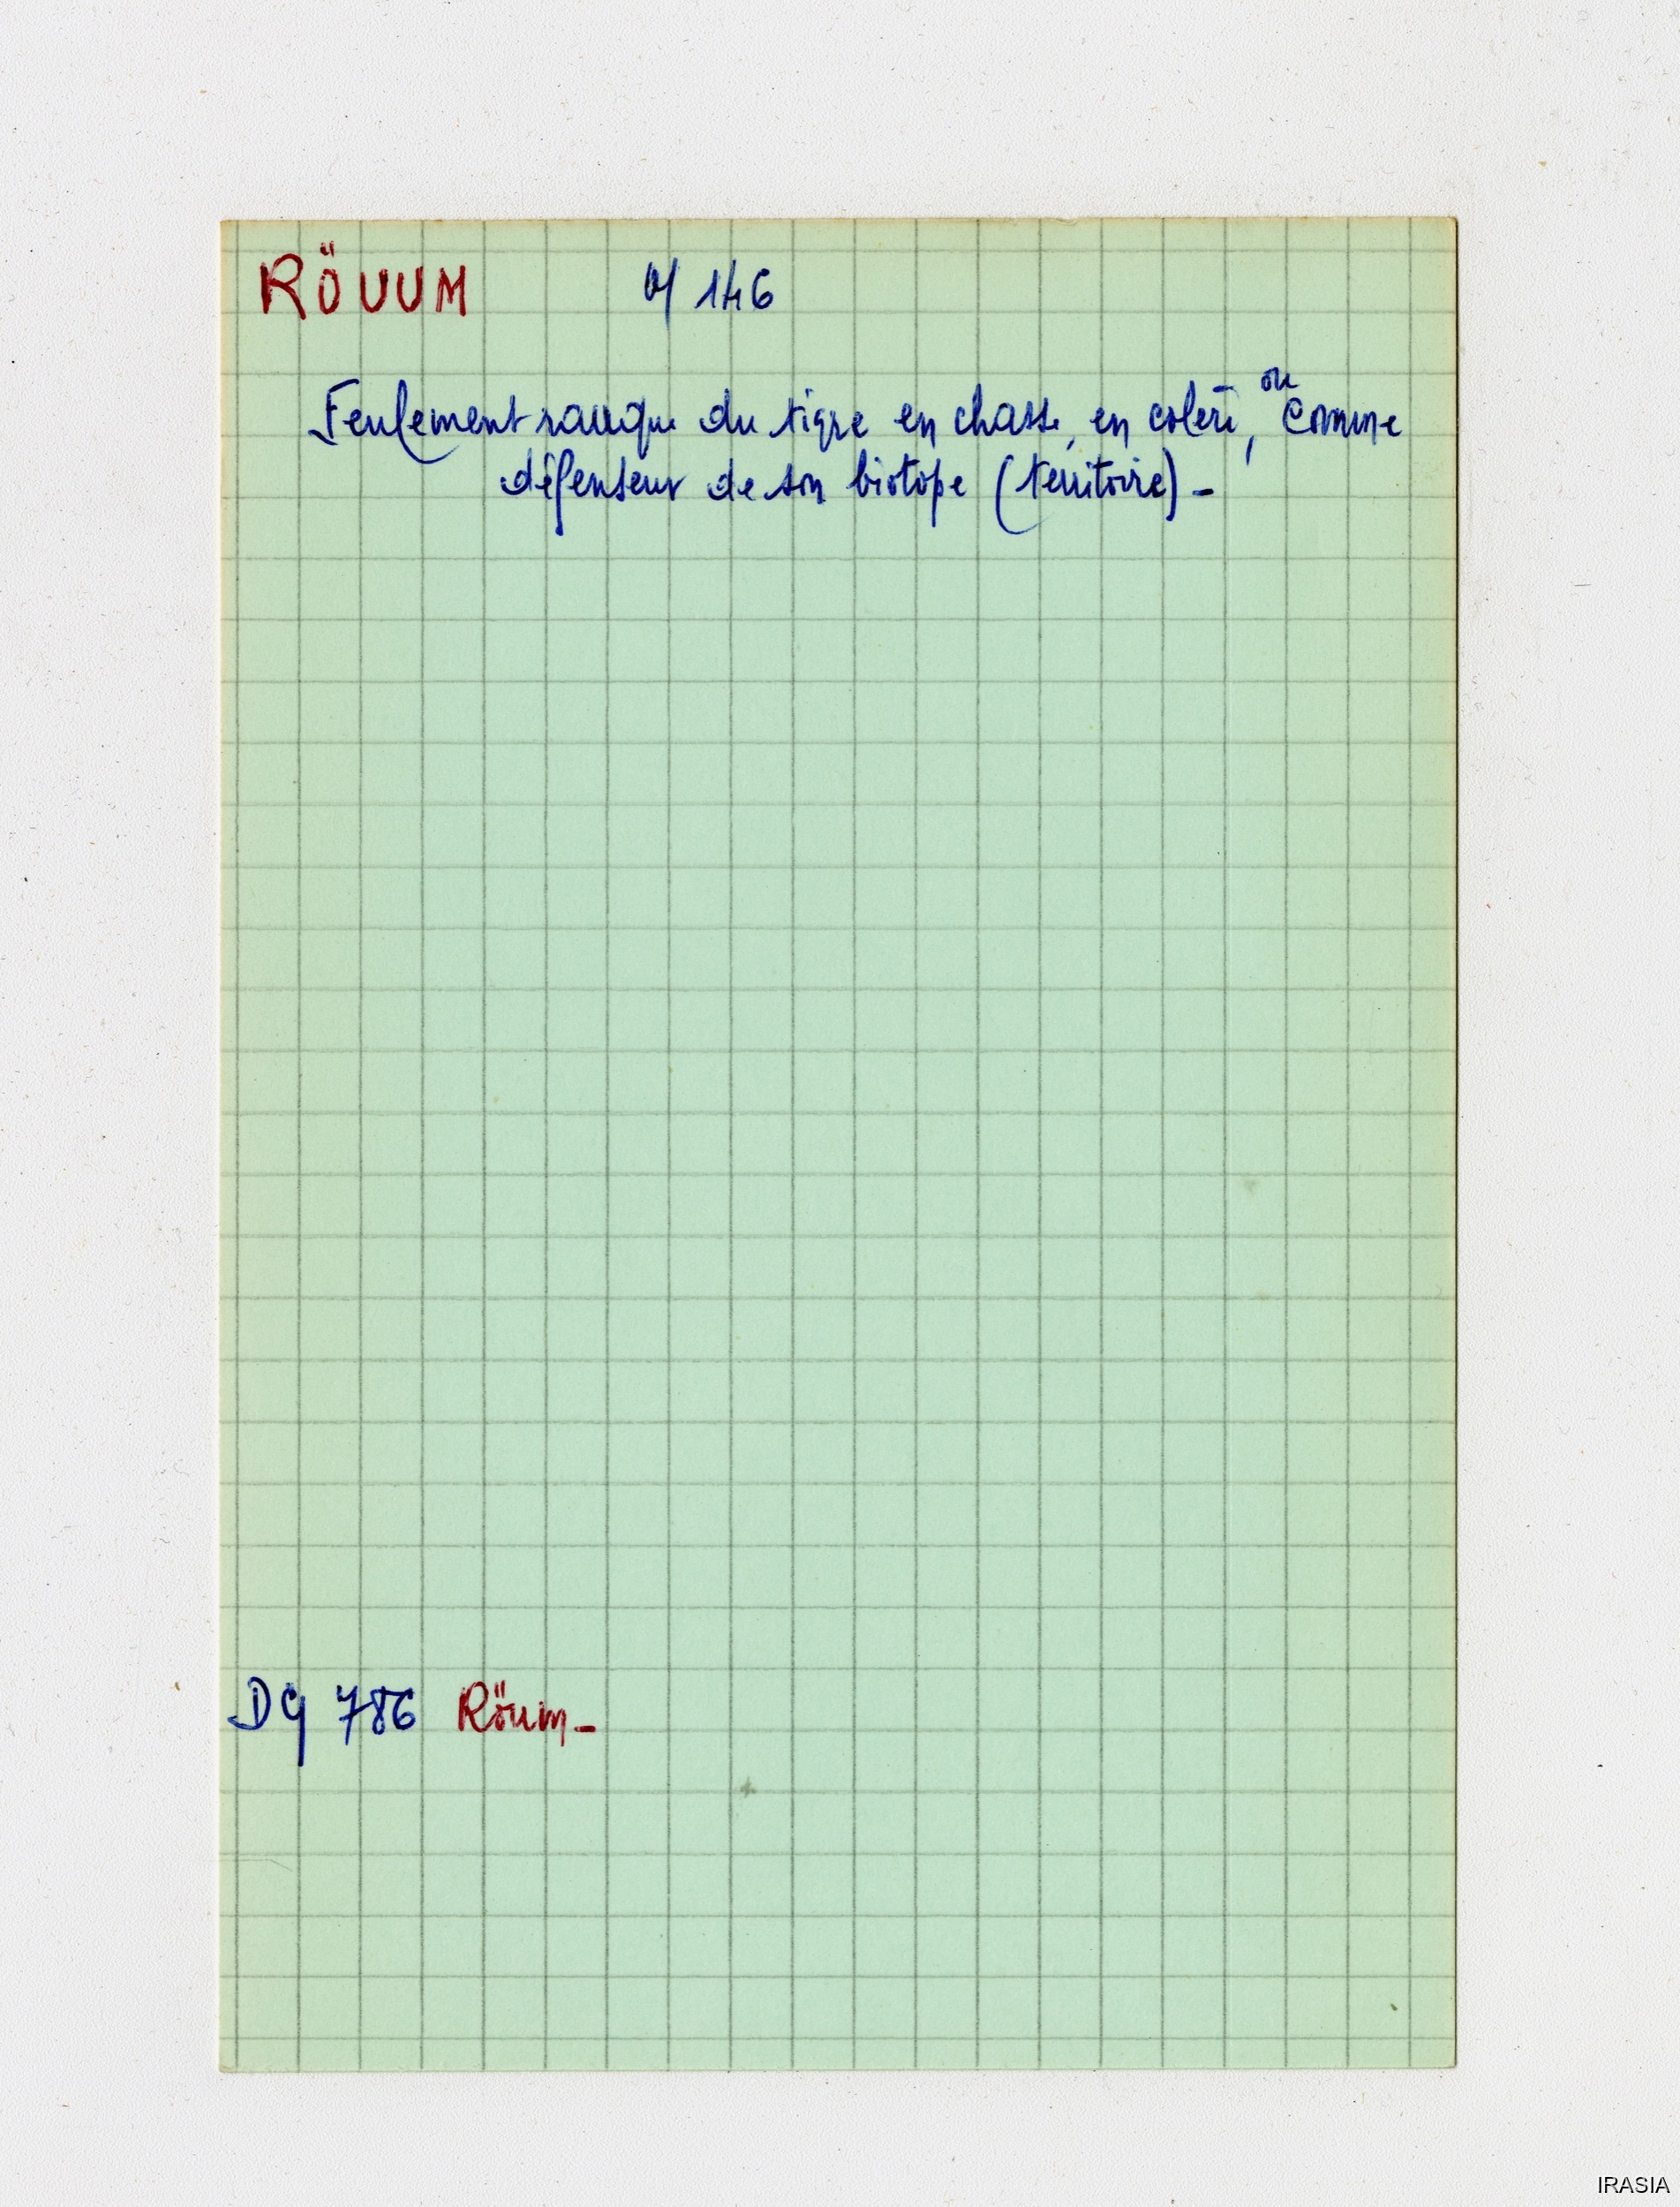 RÖUUM 146
Feulement rauque du tigre en chasse, en colère, ou comme
défenseur de son biotope (territoire) -
DG 786 Röum -
IRASIA